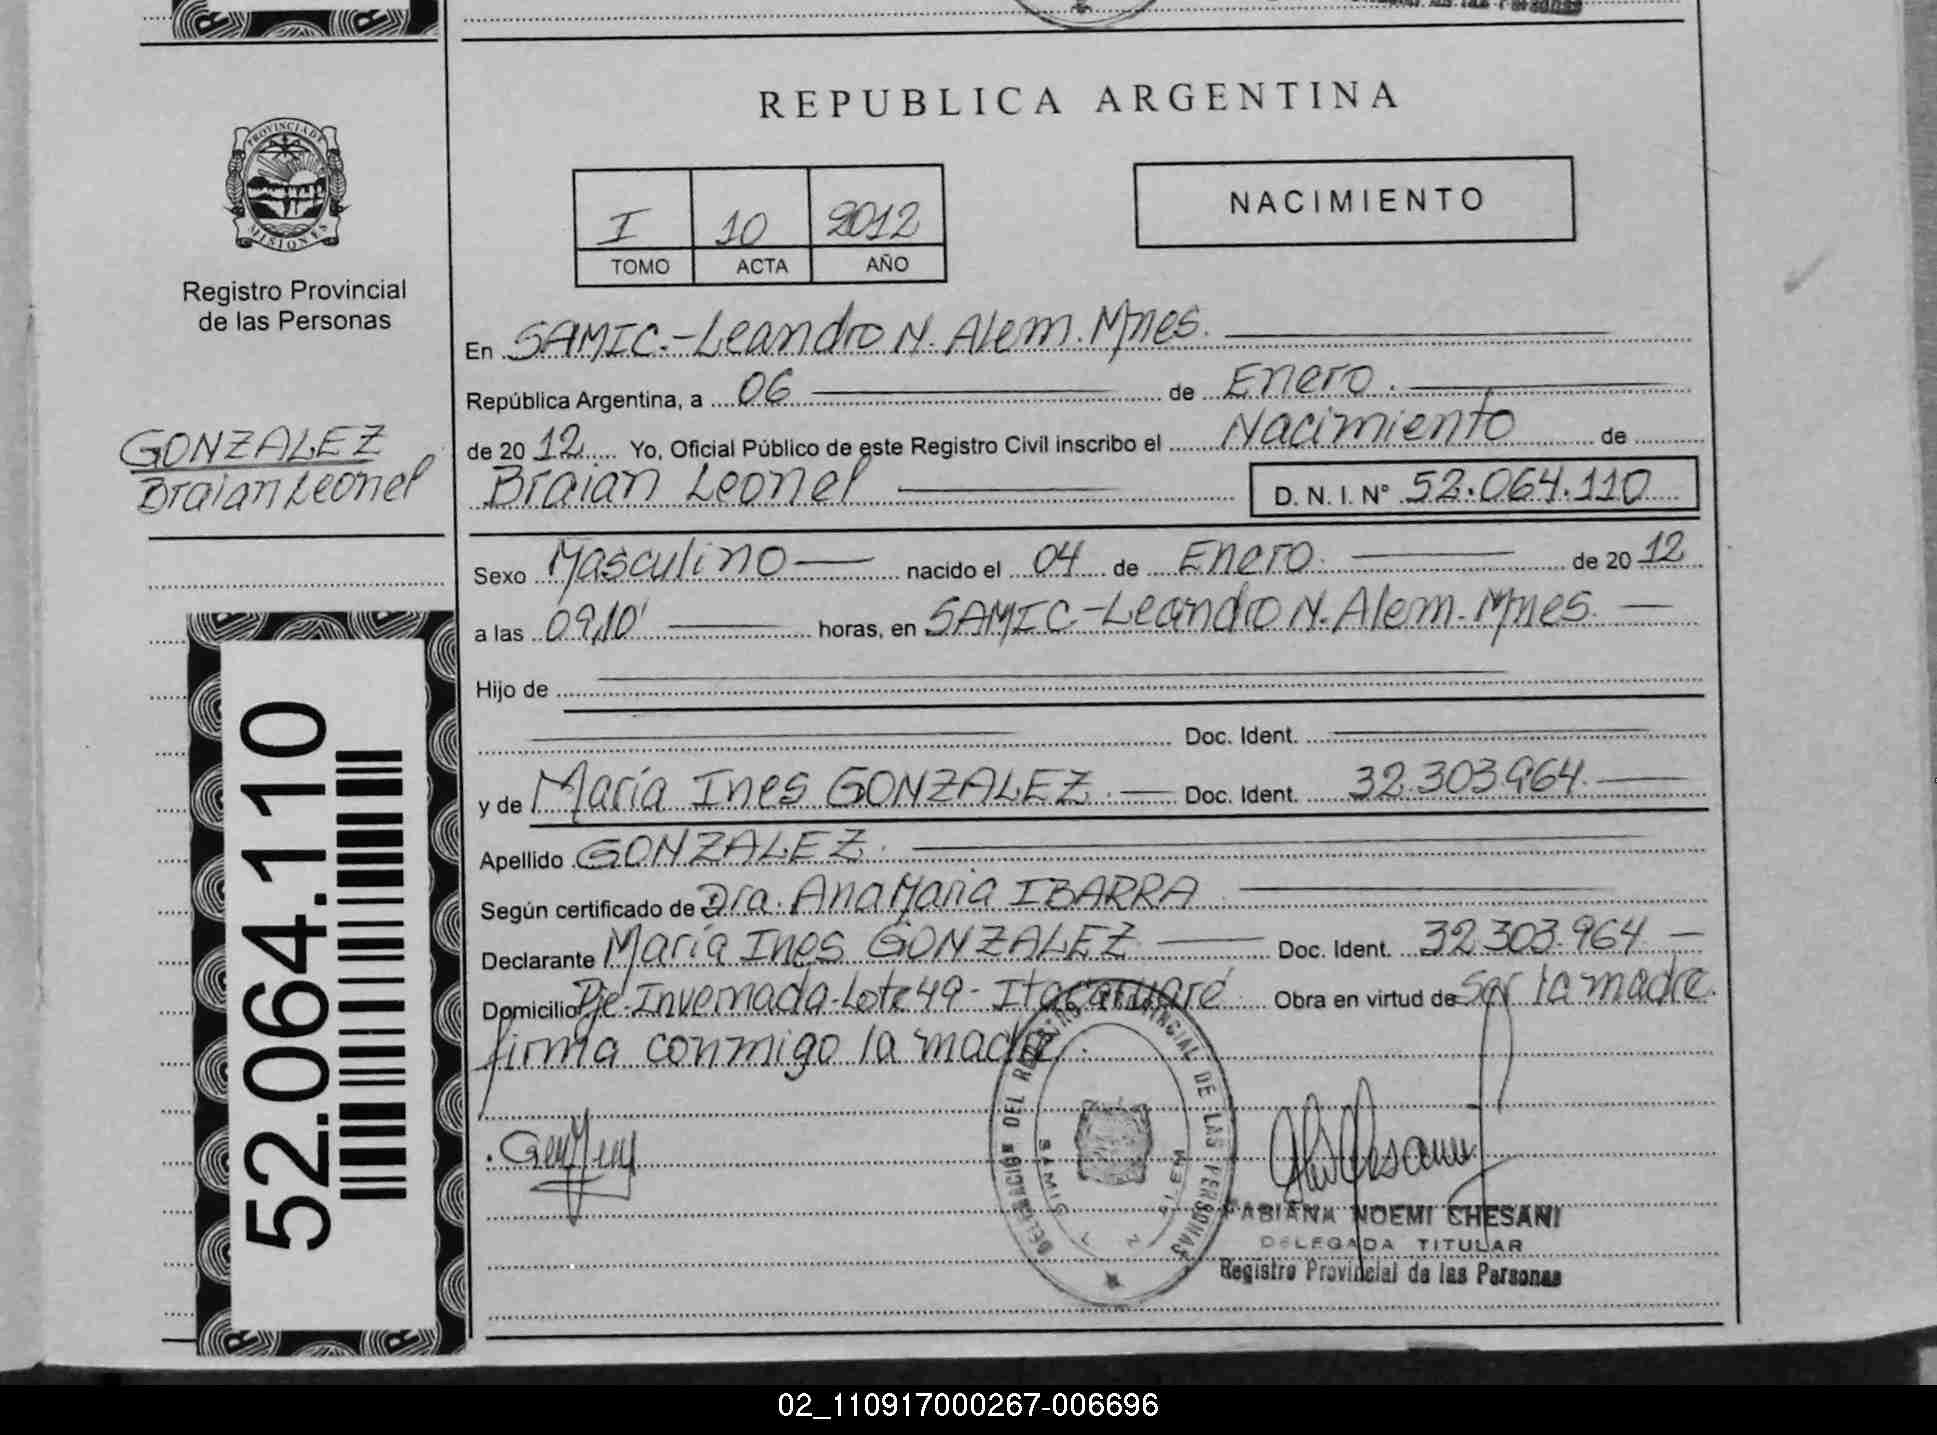 REPUBLICA ARGENTINA
PROVINCIA DE
MISIONES
Registro Provincial
de las Personas
GONZALEZ
Braian Leonel
52.064.110
I 10 2012
TOMO ACTA AÑO
NACIMIENTO
En SAMIC.-Leandro N. Alem. Mnes.
República Argentina, a 06 de Enero.
de 20 12 Yo, Oficial Público de este Registro Civil inscribo el Nacimiento de
Braian Leonel D. N. I. Nº 52.064.110
Sexo Masculino nacido el 04 de Enero. de 20 12
a las 09,10' horas, en SAMIC-Leandro N. Alem. Mnes.
Hijo de
Doc. Ident.
y de María Ines GONZALEZ. Doc. Ident. 32.303.964.
Apellido GONZALEZ.
Según certificado de Dra. Ana Maria IBARRA
Declarante María Ines GONZALEZ Doc. Ident. 32.303.964
Domicilio Pje Invernada-Lote 49- Itacaruaré Obra en virtud de Ser la madre.
firma conmigo la madre.
DELEGACIÓN DEL REGISTRO PROVINCIAL DE LAS PERSONAS
SAMIC L N ALEM
FABIANA NOEMI CHESANI
DELEGADA TITULAR
Registro Provincial de las Personas
02_110917000267-006696